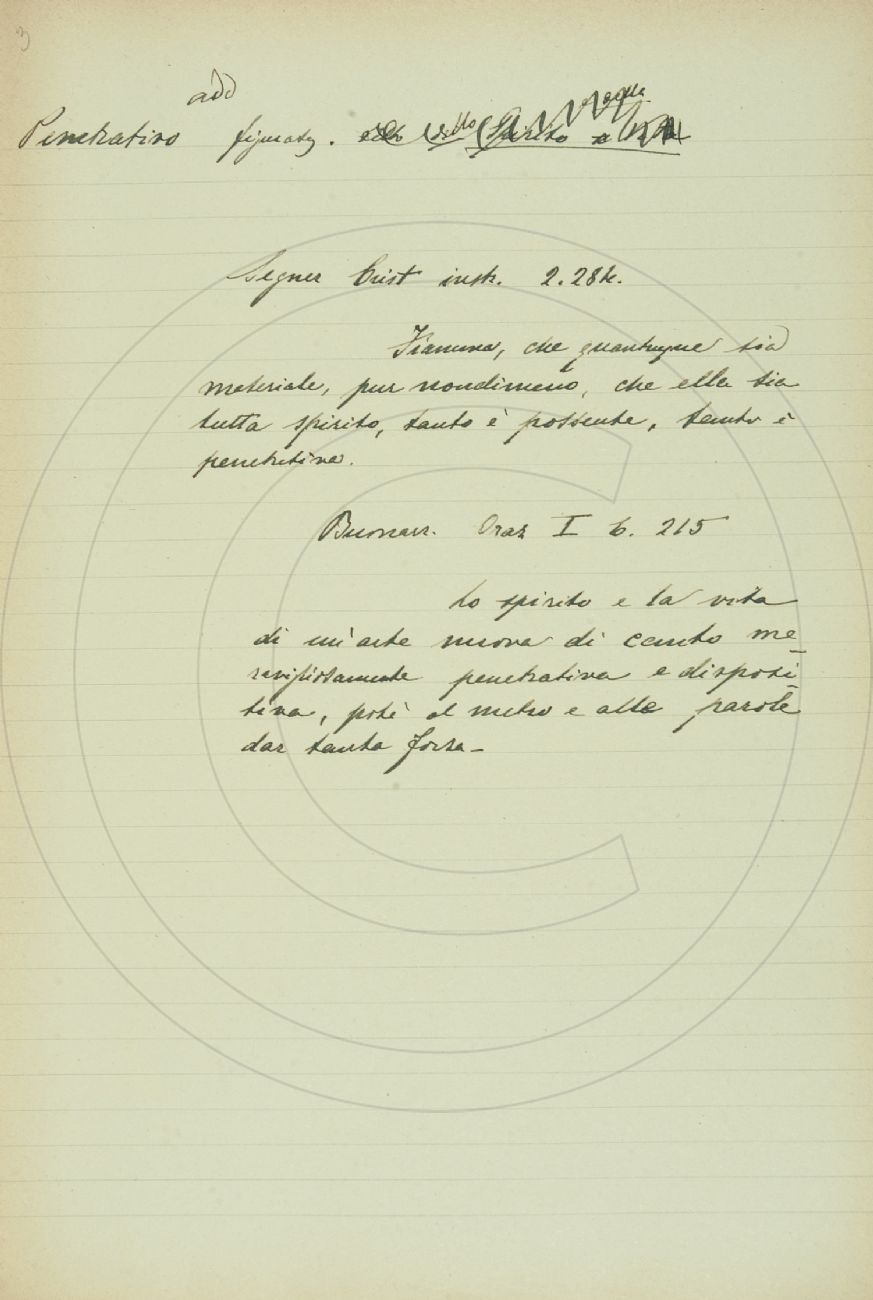 3
add
Penetrativo figurato. dello Spirito
Segner Crist instr. 2.28 k.
Fiamma, che quantunque sia
materiale, pur nondimeno, che ella sia
tutta spirito, tanto è possente, tanto è
penetrativa.
Buonarr. Oraz I b. 215
Lo spirito e la vita
di un'arte nuova di canto me
ravigliosamente penetrativa e disposi
tiva, potè al metro e alle parole
dar tanta forza -